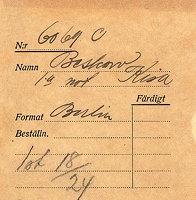 N:r 6069 C
Namn Beskow, Kisa
1a not
Färdigt
Format Berlin
Beställn.
tot 18/24